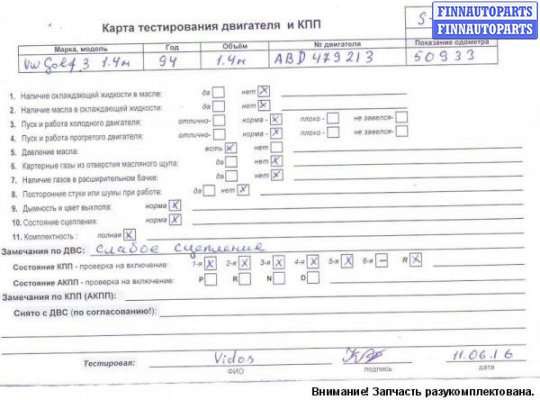 Карта тестирования двигателя и КПП
FINNAUTOPARTS
FINNAUTOPARTS
Марка, модель Год Объём № двигателя Показание одометра
VW Golf 3 1.4м 94 1.4м ABD 479213 50933
1. Наличие охлаждающей жидкости в масле: да нет X
2. Наличие масла в охлаждающей жидкости: да нет X
3. Пуск и работа холодного двигателя: отлично- норма - X плохо - не завелся-
4. Пуск и работа прогретого двигателя: отлично- норма - X плохо - не завелся-
5. Давление масла: есть X нет
6. Картерные газы из отверстия масляного щупа: да нет X
7. Наличие газов в расширительном бачке: да нет X
8. Посторонние стуки или шумы при работе: да нет X
9. Дымность и цвет выхлопа: норма X
10. Состояние сцепления: норма X
11. Комплектность : полная X
Замечания по ДВС: слабое сцепление
Состояние КПП - проверка на включение: 1-я X 2-я X 3-я X 4-я X 5-я X 6-я – R X
Состояние АКПП - проверка на включение: P R N D
Замечания по КПП (АКПП):
Снято с ДВС (по согласованию!):
Тестировал: Vidos 11.06.16
ФИО подпись дата
Внимание! Запчасть разукомплектована.